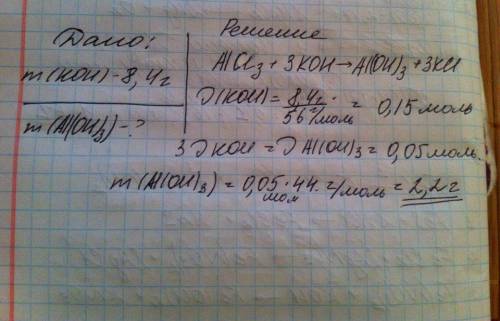 Дано:
m(KOH)-8,4г
m(Al(OH)₃)-?
Решение
AlCl₃ + 3KOH → Al(OH)₃ + 3KCl
ν(KOH) = 8,4г / 56 г/моль = 0,15 моль
3ν KOH = ν Al(OH)₃ = 0,05 моль.
m(Al(OH)₃) = 0,05 моль · 44 г/моль = 2,2 г